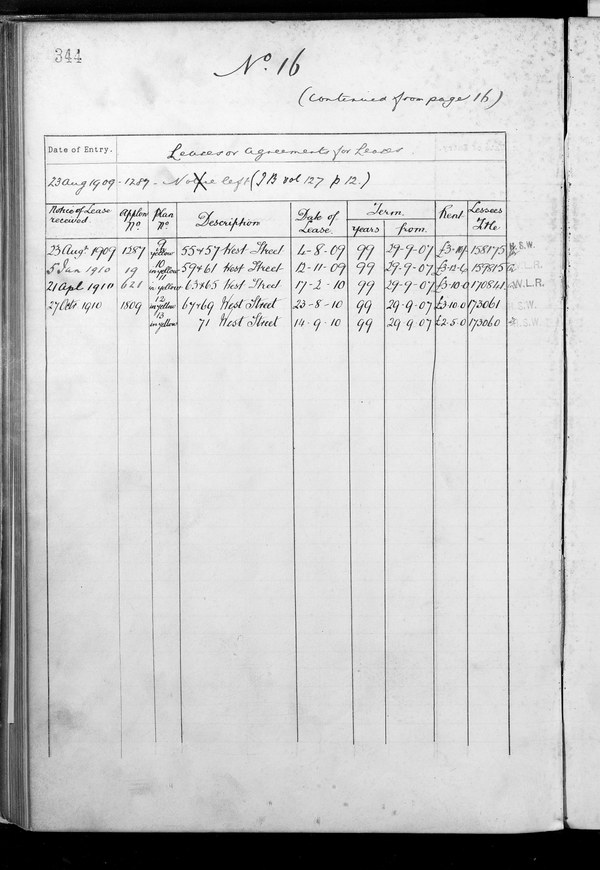 344
No. 16
(Continued from page 16)
Date of Entry.
Leases or Agreements for Leases.
23 Aug 1909 - 1287 - Notice left (I B vol 127 p 12.)
Notice of Lease received
Applon No.
Plan No
Description
Date of Lease.
Term.
years
from.
Rent
Lessees Title
23 Augt 1909 1287 9 yellow 55 & 57 West Street 4-8-09 99 29-9-07 158175
5 Jan 1910 19 10 in yellow 59 & 61 West Street 12-11-09 99 29-9-07 £3-12-6 159815
21 Apl 1910 621 11 in yellow 63 & 65 West Street 17-2-10 99 29-9-07 £3-10-0 170841 W.L.R.
27 Oct 1910 1809 12 in yellow 67 & 69 West Street 23-8-10 99 29-9-07 £3-10-0 173061
13 in yellow 71 West Street 14-9-10 99 29-9-07 £2-5-0 173060